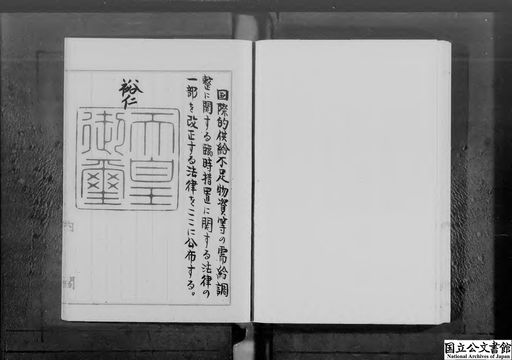 国際的供給不足物資等の需給調
整に関する臨時措置に関する法律の
一部を改正する法律をここに公布する。
裕仁
天皇
御璽
国立公文書館
National Archives of Japan